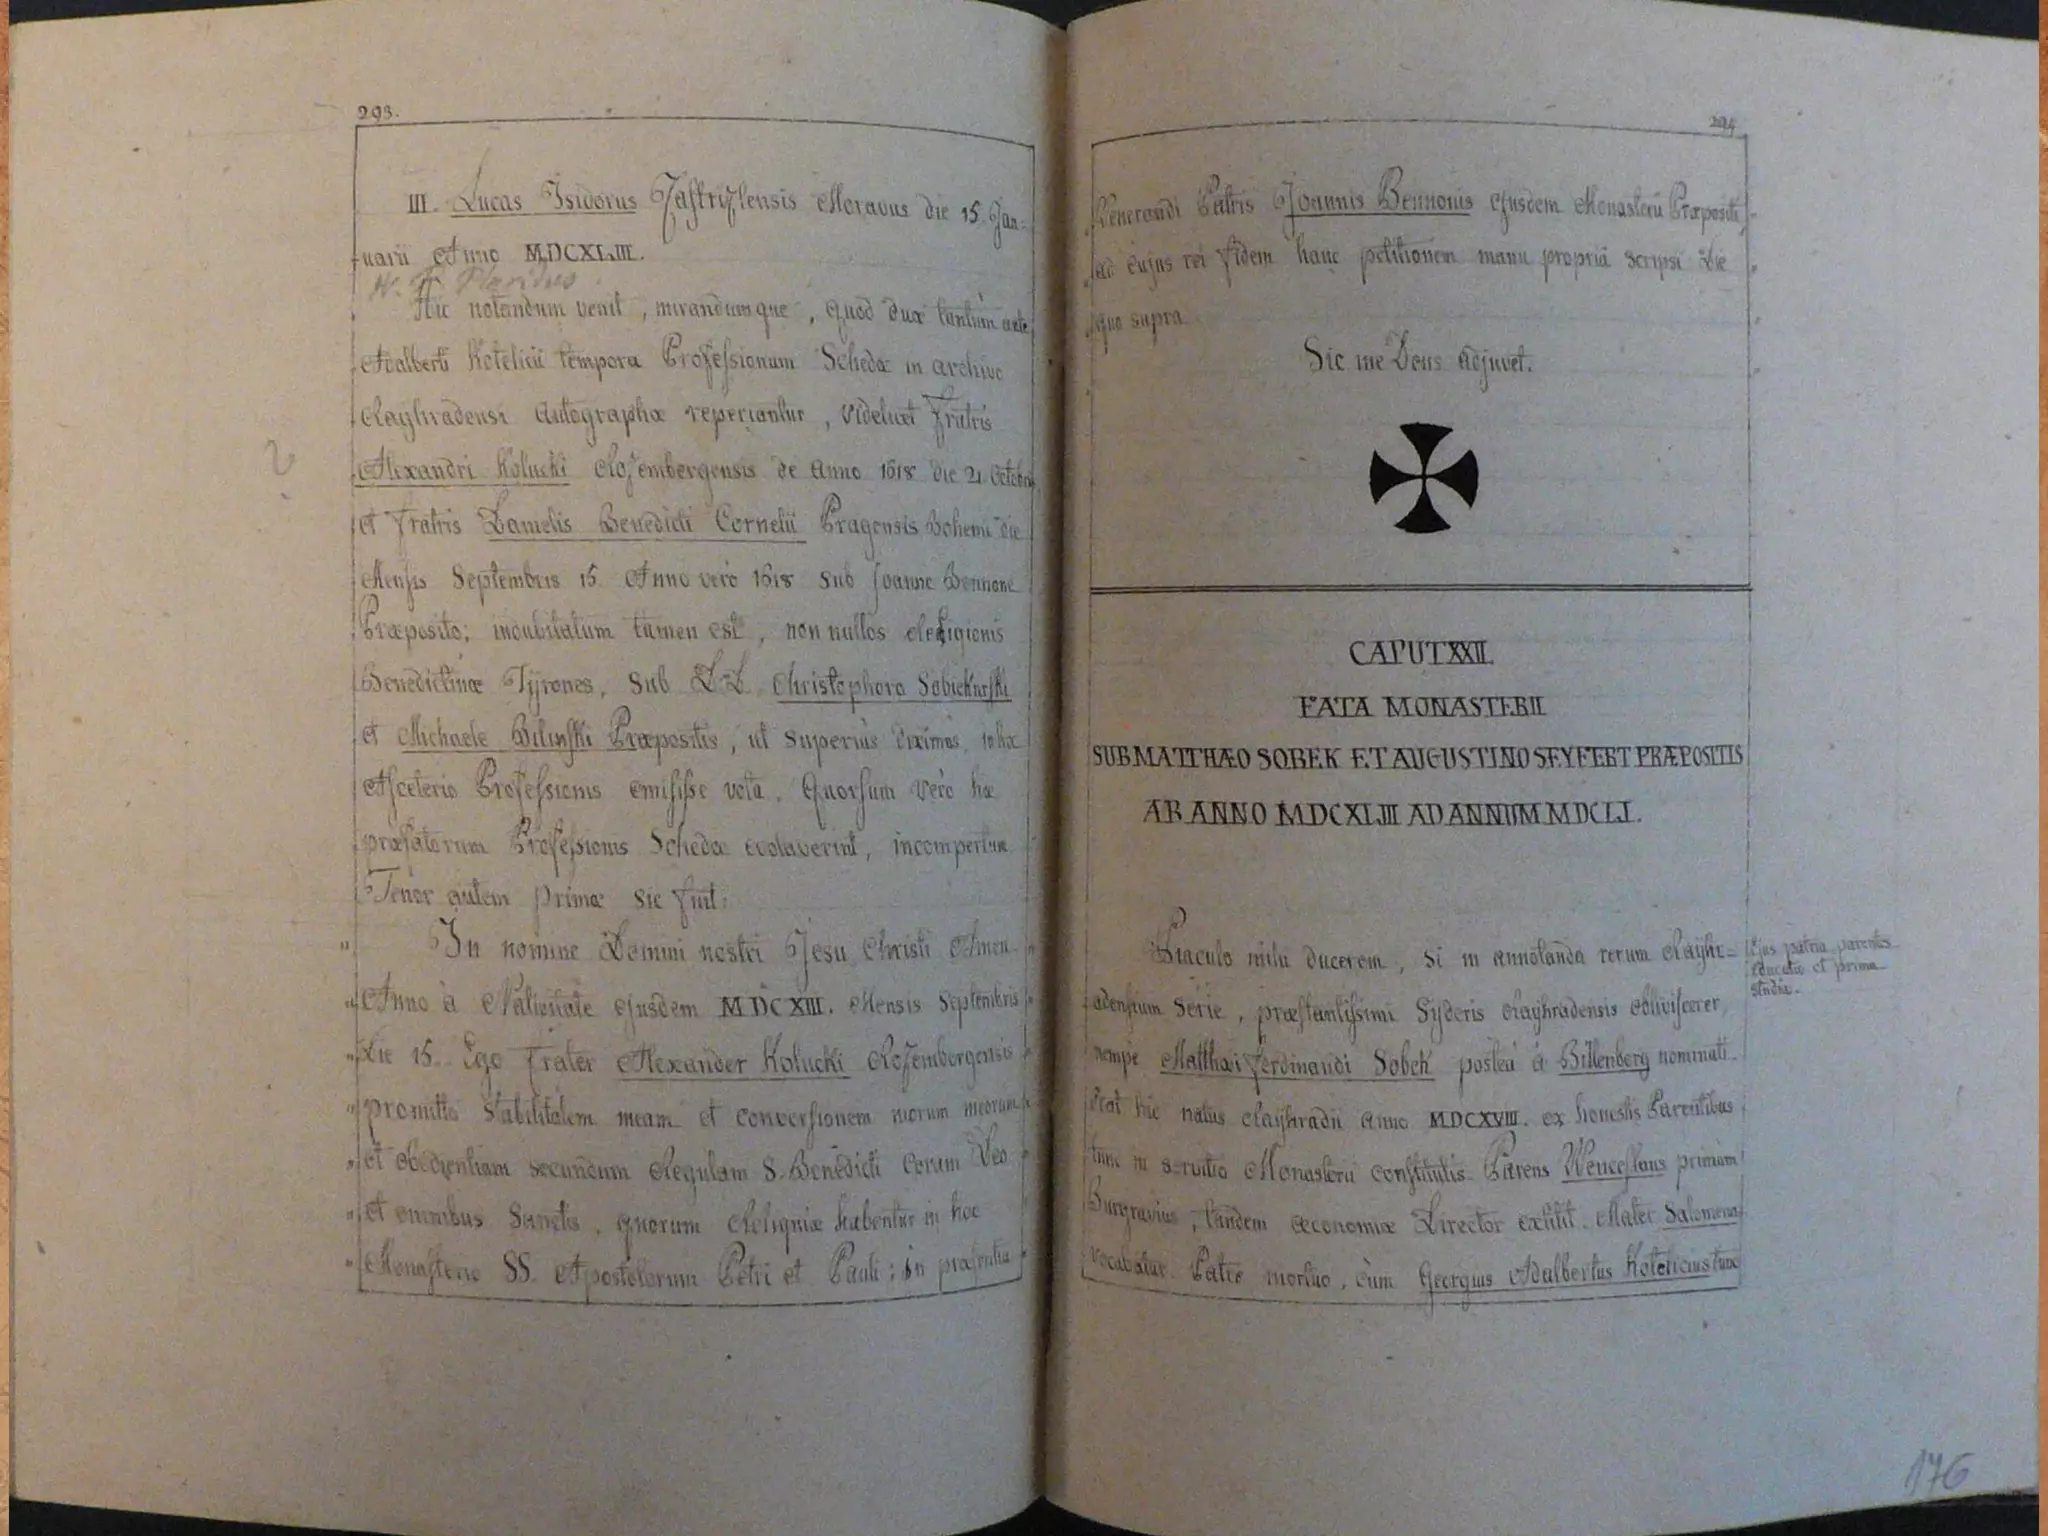 293.
III. Lucas Isidorus Jastrizlensis Moravus die 15. Jan-
uarii Anno MDCXLIII.
Hic notandum venit, mirandumque, quod duæ tantùm ante
Adalberti Kotelicii tempora Professionum Schedæ in archivo
Rayhradensi autographæ reperiantur, videlicet Fratris
Alexandri Kolucki Rozembergensis de Anno 1618 die 21. Octobris
et Fratris Danielis Benedicti Cornelii Pragensis Bohemi die
Mensis Septembris 15. Anno verò 1618 sub Joanne Bennone
Præposito; indubitatum tamen est, non nullos Religionis
Benedictinæ Tyrones, sub D.D. Christophoro Sobiekurski
et Michaele Bilinski Præpositis, ut superiùs diximus, in hoc
Asceterio Professionis emisisse vota. Quorsum verò hæ
præfatorum Professionis Schedæ evolaverint, incompertum
Tenor autem primæ sic fuit:
" In nomine Domini nostri Jesu Christi Amen
" Anno à Nativitate ejusdem MDCXIII. Mensis Septembris
" Die 15. Ego Frater Alexander Kolucki Rozembergensis
" promitto stabilitatem meam et conversionem morum meorum
" et obedientiam secundum Regulam S. Benedicti coram Deo
" et omnibus Sanctis, quorum Reliquiæ habentur in hoc
" Monasterio SS. Apostolorum Petri et Pauli; in præsentia
294
Venerandi Patris Joannis Bennonis ejusdem Monasterii Præpositi
ad cujus rei fidem hanc petitionem manu propriâ scripsi Die
quo supra
Sic me Deus adjuvet.
CAPUT XXII.
FATA MONASTERII
SUB MATTHÆO SOBEK ET AUGUSTINO SEYFERT PRÆPOSITIS
AB ANNO MDCXLIII AD ANNUM MDCLI.
Piaculo mihi ducerem, si in annotanda rerum Rayhr=
adensium Serie, præstantissimi Syderis Rayhradensis obliviscerer,
nempe Matthæi Ferdinandi Sobek posteà à Billenberg nominati.
Erat hic natus Rayhradii anno MDCXVIII. ex honestis Parentibus
tunc in servitio Monasterii constitutis. Parens Wenceslaus primùm
Burgravius, tandem œconomiæ Director extitit. Mater Salomena
vocabatur. Patre mortuo, cùm Georgius Adalbertus Kotelicius tunc
Ejus patria parentes
educatio et prima
studia.
176